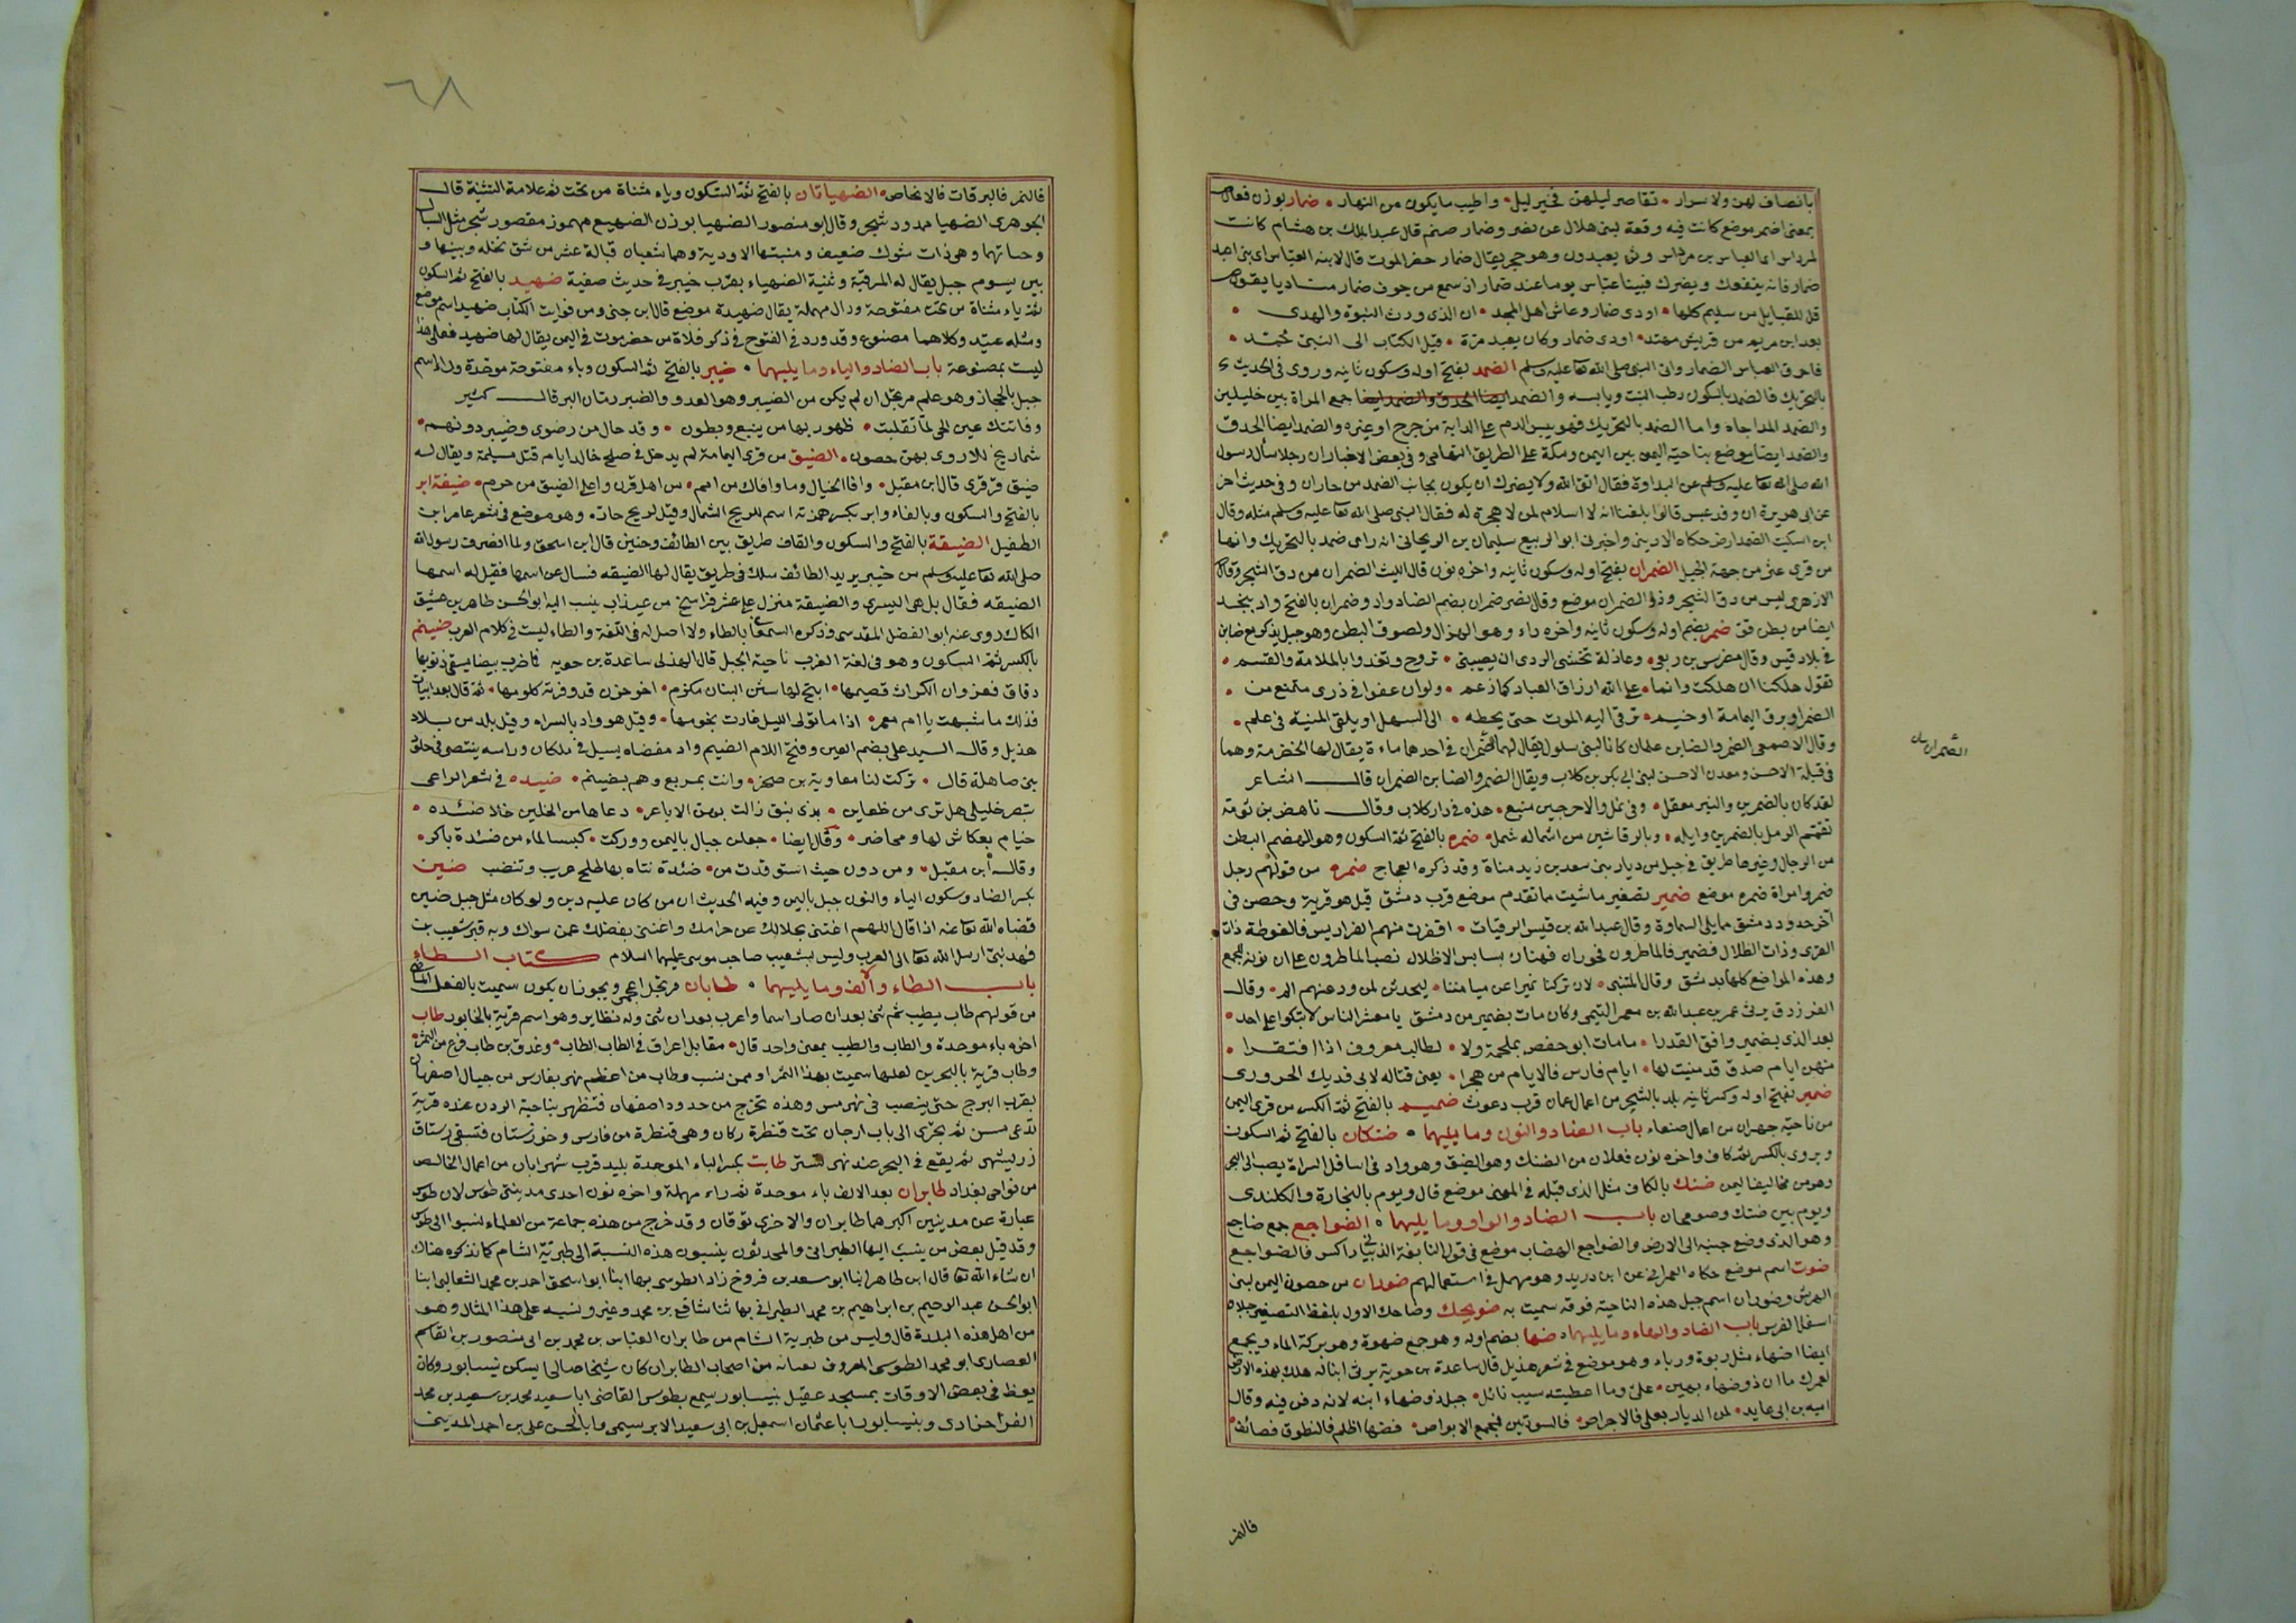 بانصاف لهن ولا سرار • تقاصر ليلهن فخير ليل • واطيب ما يكون من النهار • ضمار بوزن فعال
بمعنى اضمر موضع كانت فيه وقعة لبنى هلال عن نصر وضمار صنم قال عبد الملك بن هشام كانت
لمرداس ابى العباس بن مرداس وثن يعبدون وهو حجر يقال ضمار حضر الموت قال لابنه العباس اى بنى اعبد
ضمار فانه ينفعك ويضرك فبينا عباس يوما عند ضمار اذ سمع من جوف ضمار مناديا يقول
قل للقبايل من سليم كلها • اودى ضمار وعاش اهل المجد • ان الذى ورث النبوة والهدى •
بعد ابن مريم من قريش مهتد • اودى ضمار وكان يعبد مرة • قبل الكتاب الى النبى محمد •
فاحرق العباس الضمار واتى النبى صلى الله تعا عليه وسلم الضمد بفتح اوله وسكون ثانيه وروى فى الحديث
بالتحريك فالضمد بالسكون رطب النبت ويابسه والضمد جمع المراة بين خليلين
والضمد المداجاة واما الضمد بالتحريك فهو يبس الدم على الدابة من جرح او غيره والضمد ايضا الحدق
والضمد ايضا موضع بناحية اليمن بين اليمن ومكة على الطريق التهامى وفى بعض الاخبار ان رجلا سأل رسول
الله صلى الله تعا عليه وسلم عن البداوة فقال اتق الله ولا يضرك ان يكون بجانب الضمد من جازان وفى حديث اخر
عن ابى هريرة ان وفد عبس قالوا بلغنا انه لا اسلام لمن لا هجرة له فقال النبى صلى الله تعا عليه وسلم مثله وقال
من قرى عثر من جهة الجبل الضمران بفتح اوله وسكون ثانيه واخره نون قال الليث الضمران من دق الشجر وقال
الازهرى ليس من دق الشجر وذو الضمران موضع وقال نصر ضمران بضم الضاد واد وضمران بالفتح واد بنجد
ايضا من بطن قو ضمر بضم اوله وسكون ثانيه واخره راء وهو الهزال ولصوق البطن وهو جبل يذكر مع ضاين
فى بلاد قيس وقال مغرس بن ربعى • وعاذلة تخشى الردى ان يصيبنى • تروح وتغدوا بالملامة والقسم •
تقول هلكنا ان هلكت وانما • على الله ارزاق العباد كما زعم • ولو ان عفوا فى ذرى متمنع من •
الضمر او برق اليمامة او خيم • ترقى اليه الموت حتى يحطه • الى السهل او يلقى المنية فى علم •
وقال الاصمعى الضمر والضاين علمان كانا لبنى سلول يقال لهما الضمران فى احدهما ماءة يقال لها الخضرمة وهما
فى قبلة الاحسن ومعدن الاحسن لبنى ابى بكر بن كلاب ويقال الضمر والضاين الضمران قال الشاعر
لقد كان بالضمرين والنير معقل • وفى نملى والاخرجين منيع • هذه فى دار كلاب وقال ناهض بن ثومة
تقمم الرمل بالضمرين وابله • وبالرقاشين من اسباله شمل • ضمر بالفتح ثم السكون وهو الهضيم البطن
من الرجال وغيرها طريق فى جبل من ديار بنى سعد بن زيد مناة وقد ذكره العجاج ضمره من قولهم رجل
ضمر وامراة ضمره موضع ضمير تصغير ما شيت مما تقدم موضع قرب دمشق قيل هو قرية وحصن فى
آخر حدود دمشق مما يلى السماوة وقال عبد الله بن قيس الرقيات • اقفرت منهم الفراديس فالغوطة ذات
القرى وذات الظلال فضمير فالماطرون فحوران قفار بسابس الاطلال نصب الماطرون على ان نونه للجمع
وهذه المواضع كلها بدمشق وقال المتنبى • لان تركنا ضميرا عن ميامننا • ليحدثن لمن ودعتهم الم • وقال
الفرزدق يرثى عمر بن عبد الله بن معمر التيمى وكان مات بضمير من دمشق يا معشر الناس لا تبكوا على احد •
بعد الذى بضمير وافق القدرا • ما مات ابو حفص بملحمة ولا • لطالب معروف اذا افتقرا •
منهن ايام صدق قد منيت لها • ايام فارس فالايام من هجرا • يعنى قتاله لابى فديك الحرورى
ضمير بفتح اوله وكسر ثانيه بلد بالشحر من اعمال عمان قرب دغوث ضميم بالفتح ثم الكسر من قرى اليمن
من ناحية جهران من اعمال صنعاء باب الضاد والنون وما يليهما • ضنكان بالفتح ثم السكون
ويروى بالكسر ثم كاف واخره نون فعلان من الضنك وهو الضيق وهو واد فى اسافل السراة يصب الى البحر
وهو من مخاليف اليمن ضنك بالكاف مثل الذى قبله فى المعنى موضع قال ويوم بالنجارة والكلندى
ويوم بين ضنك وصومحان باب الضاد والواو وما يليهما • الضواجع جمع ضاجع
وهو الذى وضع جنبه الى الارض والضواجع الهضاب موضع فى قول النابغة الذبيانى راكس فالضواجع
ضوت اسم موضع حكاه العمرانى عن ابن دريد وهو مهمل فى استعمالهم ضوران من حصون اليمن لبنى
الهرش وضوران اسم جبل هذه الناحية فوقه سميت به ضويحك وضاحك الاول بلفظ التصغير جبلان
اسفل الفرش باب الضاد والهاء وما يليهما • ضها بضم اوله وهو جمع ضهوة وهو بركة الماء ويجمع
ايضا اضهاء مثل ربوة ورباء وهو موضع فى شعر هذيل قال ساعدة بن جوية يرثى ابنا له هلك بهذه الارض
لعمرك ما ان ذو ضهاء بهين • على وما اعطيته سيب نائل • جبل ذو ضهاء ابنه لانه دفن فيه وقال
اميه بن ابى عايد • لمن الديار بعلى فالاحراص • فالسودتين فمجمع الابواص • فضها اظلم فالنطوف فصائف •
الضمران
فالنمر
٦٨
فالنمر فالبرقات فالانحاص • الضهياتان بالفتح ثم السكون وياء مثناة من تحت ثم علامة التثنية قال
الجوهرى الضهيا ممدود شجر وقال ابو منصور الضهيا بوزن الضهيع مهموز مقصور شجر مثل السيال
وجناتهما وهى ذات شوك ضعيف ومنبتها الاودية وهما شعبان قبالة عشر من شق نخله وبينها و
بين يسوم جبل يقال له المرقبة وثنية الضهياء بقرب خيبر فى حديث صفية ضهيد بالفتح ثم السكون
ثم ياء مثناة من تحت مفتوحة ودال مهملة يقال ضهيدة موضع قال ابن جنى ومن فوايت الكتاب ضهيد اسم موضع
ومثله عتيد وكلاهما مصنوع وقد ورد فى الفتوح فى ذكر فلاة من حضرموت فى اليمن يقال لها ضهيد فعلى هذا
ليست بمصنوعة باب الضاد والياء وما يليهما • ضيبر بالفتح ثم السكون وباء مفتوحة موحدة وراء اسم
جبل بالحجاز وهو علم مرتجل ان لم يكن من الضيبر وهو العدو والضبر رمان البر قال كثير
وفاتتك عين الحى لما تقلبت • ظهور بها من ينبع وبطون • وقد حال من رضوى وضيبر دونهم •
شماريخ للاروى بهن حصون • الضيق من قرى اليمامة لم يدخل فى صلح خالد ايام قتل مسيلمة ويقال له
ضيق قرقرى قال ابن مقبل • وافا الخيال وما وافاك من امم • من اهل قرن واعلى الضيق من حرم • ضيقة ابر
بالفتح والسكون وبالفاء وابر بكسر همزته اسم للريح الشمال وقيل لريح حاره وهو موضع فى شعر عامر ابن
الطفيل الضيقة بالفتح والسكون والقاف طريق بين الطائف وحنين قال ابن اسحق ولما انصرف رسول الله
صلى الله تعا عليه وسلم من خيبر يريد الطائف سلك فى طريق يقال لها الضيقه فسال عن اسمها فقيل له اسمها
الضيقه فقال بل هى اليسرى والضيقة منزل على عشر فراسخ من عيذاب ينسب اليه ابو الحسن طاهر بن عتيق
الكاك روى عنه ابو الفضل المقدسى وذكره السمعانى بالطاء ولا اصل له فى اللغة والطاء ليست فى كلام العرب ضيم
بالكسر ثم السكون وهو فى لغة العرب ناحية الجبل قال الهذلى ساعدة بن جويه فما ضرب بيضا يسقى ذنوبها
دفاق فعروان الكراث فضيمها • اتيح لها شثن البنان مكزم • اخو حزن قد وقرته كلومها • ثم قال بعد ابيات
فذلك ما شبهت يا ام معمر • اذا ما تولى الليل غارت نجومها • وقيل هو واد بالسراه وقيل بلد من بلاد
هذيل وقال السيد على بضم العين وفتح اللام الضيم واد مفضاه يسيل فى ملكان وراسه ينتصى فى حلق
بنى صاهلة قال • تركت لنا معاوية بن صخر • وانت بمربع وهم بضيم • ضيده فى شعر الراعى
تبصر خليلى هل ترى من ظعاين • بذى نبق زالت بهن الاباعر • دعاها من الخلين خلا ضئده •
خيام بعكاش لها ومحاضر • وقال ايضا • جعلن جبال باليمن ووركت • كبسا لماء من ضئدة باكر •
وقال ابن مقبل • ومن دون حيث استوقدت من • ضئدة تناه بها طلح غريب وتنضب ضين
بكسر الضاد وسكون الياء والنون جبل باليمن وفيه الحديث ان من كان عليه دين ولو كان مثل جبل ضين
قضاه الله تعا عنه اذا قال اللهم اغننى بحلالك عن حرامك واغننى بفضلك عمن سواك وبه قبر شعيب بن
فهد نبى ارسل الله تعا الى العرب وليس بشعيب صاحب موسى عليهما السلام كتاب الطاء
باب الطاء والالف وما يليهما • طابان مرتجل اعجمى ويجوز ان يكون سميت بالفعل الماضى
من قولهم طاب يطيب ثم ثنى بعد ان صار اسما واعرب بعد ان ثنى وله نظاير وهو اسم قرية بالخابور طاب
اخره باء موحدة والطاب والطيب بمعنى واحد قال • مقابل اعراق فى الطاب الطاب • وعذق بن طاب نوع من التمر •
وطاب قرية بالبحرين لعلها سميت بهذا التمر او ممن نسب وطاب من اعظم نهر بفارس من جبال اصفهان
بقرب البرج حتى ينصب فى نهر مس وهذه تخرج من حدود اصفهان فتظهر بناحية الردن عنده قرية
تدعى مسن ثم يجرى الى باب ارجان تحت قنطرة ركان وهى قنطرة من فارس وخوزستان فتسقى رستاق
زر ليشهر ثم يقع فى البحر عند نهر تستر طابت بكسر الباء الموحدة بليد قرب شهرابان من اعمال الخالص
من نواحى بغداد طابران بعد الالف باء موحدة ثم راء مهملة واخره نون احدى مدينتى طوس لان طوس
عبارة عن مدينتين اكبرهما طابران والاخرى نوقان وقد خرج من هذه جماعة من العلماء نسبوا الى طوس
وقد قيل بعض من ينسب اليها الطبرانى والمحدثون ينسبون هذه النسبة الى طبرية الشام كما نذكره هناك
ان شاء الله تعا قال ابن طاهر انبا ابو سعد بن فروخ زاد الطوسى بها انبا ابو اسحق احمد بن محمد الثعالبى انبا
ابو الحسن عبد الرحيم بن ابراهيم بن محمد الطبرانى بها ثنا شافع بن محمد وغيره ونسبه على هذا المثال وهو
من اهل هذه البلدة قال وليس من طبرية الشام من طابران العباس بن محمد بن ابى منصور بن القاسم
العصارى ابو محمد الطوسى المعروف بعباسة من اصحاب الطابران كان شيخا صالحا يسكن نيسابور وكان
يعظ فى بعض الاوقات بمسجد عقيل بنيسابور سمع بطوس القاضى ابا سعيد محمد بن سعيد بن محمد
الفرخزادى وبنيسابور ابا عثمان اسمعيل بن ابى سعيد الابريسمى وابا الحسن على بن احمد المدينى